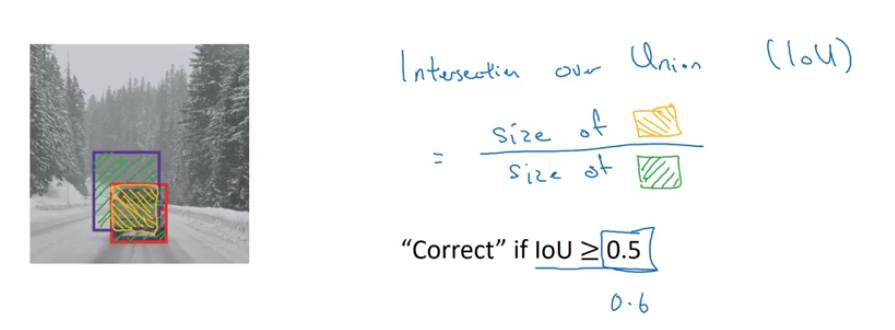 Intersection over Union (IoU)
size of
=
size of
“Correct” if IoU ≥ 0.5
0.6